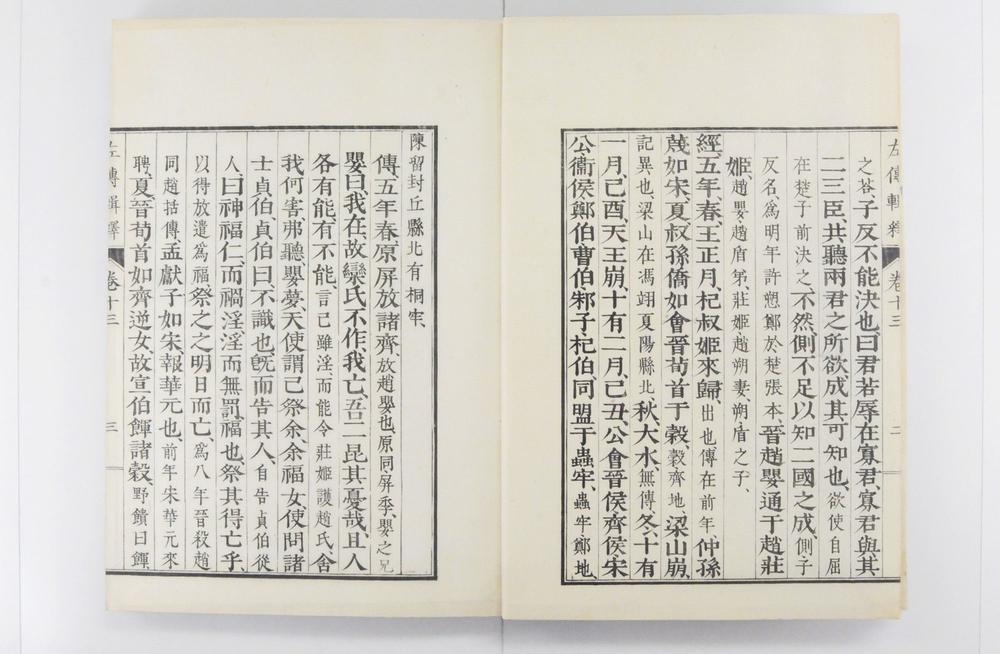 左傳輯釋 卷十三 二
之荅、子反不能決也、曰、君若辱在寡君、寡君與其
二三臣、共聽兩君之所欲、成其可知也、欲使自屈
在楚子前決之、不然、側不足以知二國之成、側、子
反名、爲明年許愬鄭於楚張本、晉趙嬰通于趙莊
姬、趙嬰、趙盾弟、莊姬、趙朔妻、朔、盾之子、
經、五年、春、王正月、杞叔姬來歸、出也、傳在前年、仲孫
蔑如宋、夏、叔孫僑如會晉荀首于穀、穀齊地、梁山崩、
記異也、梁山在馮翊夏陽縣北、秋、大水、無傳、冬、十有
一月、己酉、天王崩、十有二月、己丑、公會晉侯、齊侯、宋
公、衞侯、鄭伯、曹伯、邾子、杞伯、同盟于蟲牢、蟲牢、鄭地、
陳留封丘縣北有桐牢、
傳、五年、春、原屏放諸齊、放趙嬰也、原同、屏季、嬰之兄
嬰曰、我在、故欒氏不作、我亡、吾二昆其憂哉、且人
各有能、有不能、言己雖淫、而能令莊姬護趙氏、舍
我何害、弗聽、嬰夢天使謂己、祭余、余福女、使問諸
士貞伯、貞伯曰、不識也、旣而告其人、自告貞伯從
人、曰、神福仁、而禍淫、淫而無罰、福也、祭其得亡乎、
以得放遣爲福、祭之之明日而亡、爲八年晉殺趙
同趙括傳、孟獻子如宋、報華元也、前年宋華元來
聘、夏、晉荀首如齊逆女、故宣伯餫諸穀、野饋曰餫、
左傳輯釋 卷十三 三